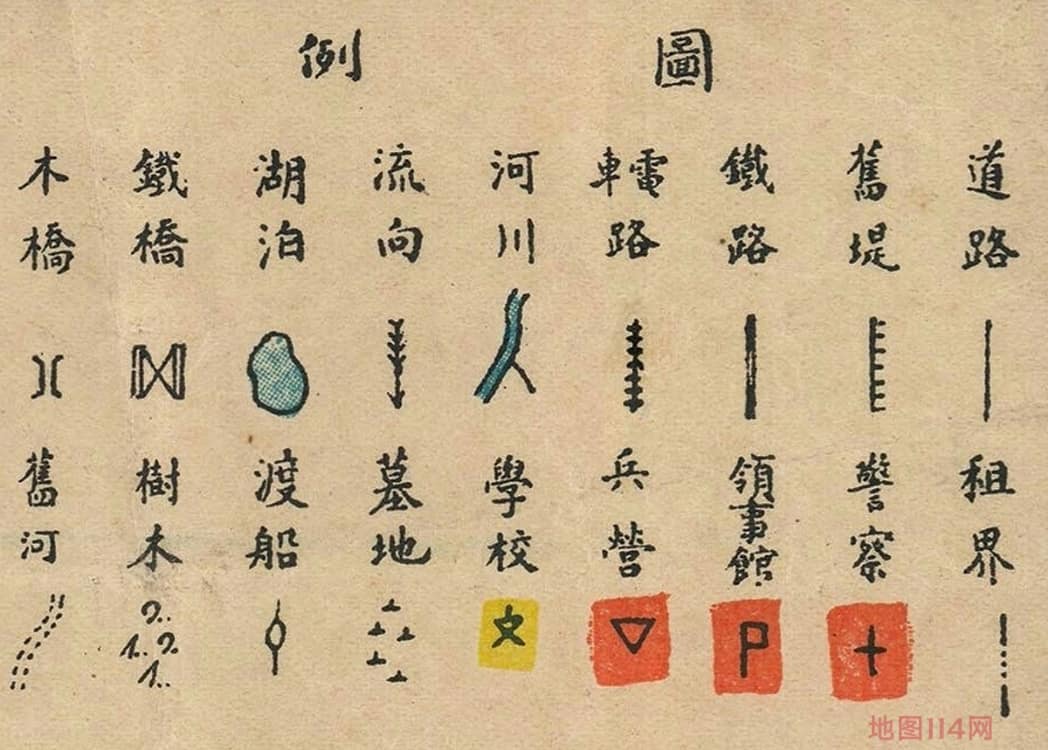 圖例
道路
舊堤
鐵路
電車路
河川
流向
湖泊
鐵橋
木橋
租界
警察
領事館
兵營
學校
墓地
渡船
樹木
舊河
文
地图114网